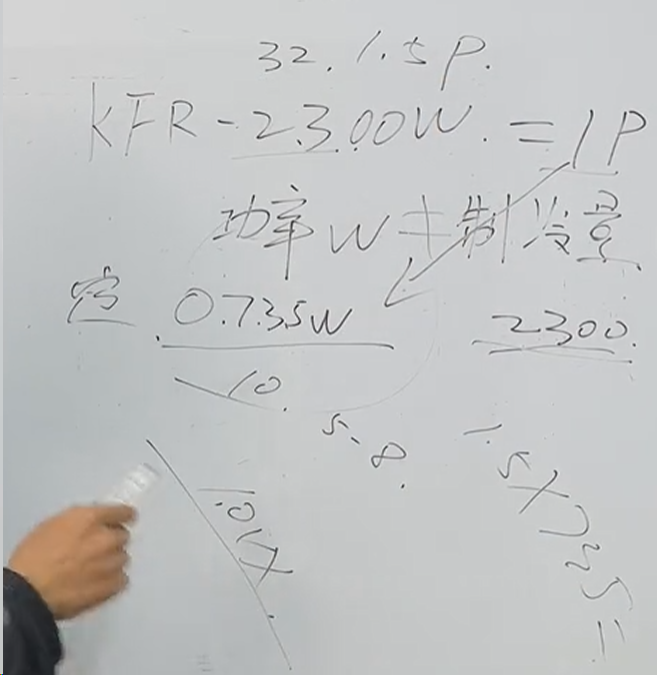 32. 1.5P.
KFR-2300W. = 1P
功率W ≠ 制冷量
0.735W 2300.
10.
5-8.
1.5X735=